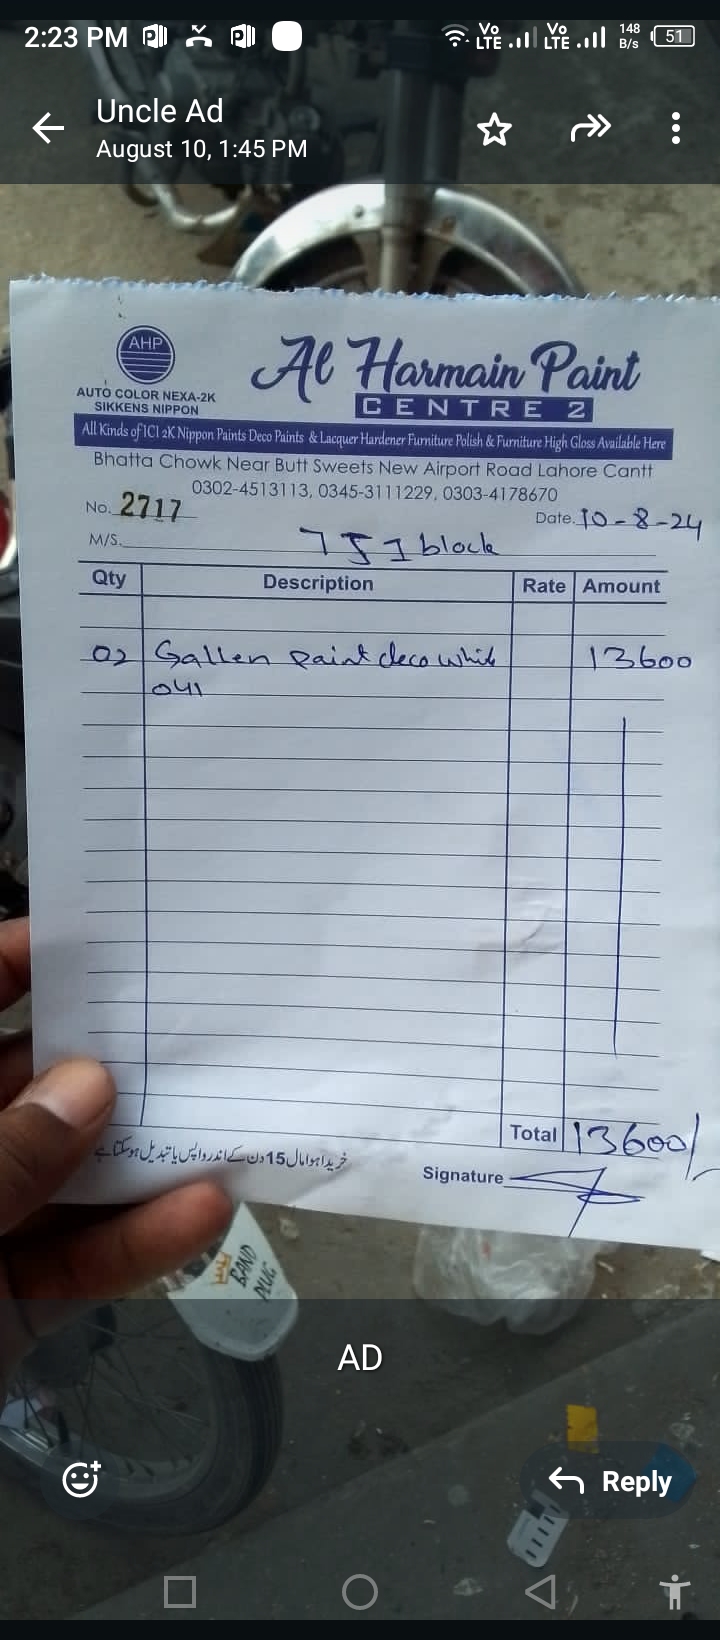 2:23 PM Vo LTE Vo LTE 148 B/s 51
Uncle Ad
August 10, 1:45 PM
AHP
AUTO COLOR NEXA-2K
SIKKENS NIPPON
Al Harmain Paint
CENTRE 2
All Kinds of ICI 2K Nippon Paints Deco Paints & Lacquer Hardener Furniture Polish & Furniture High Gloss Available Here
Bhatta Chowk Near Butt Sweets New Airport Road Lahore Cantt
0302-4513113, 0345-3111229, 0303-4178670
No. 2717 Date. 10-8-24
M/S. block
Qty Description Rate Amount
02 Gallen paint deco white 13600
041
Total 13600/
خریدا ہوا مال 15 دن کے اندر واپس یا تبدیل ہوسکتا ہے
Signature
BAND
PLUG
AD
Reply